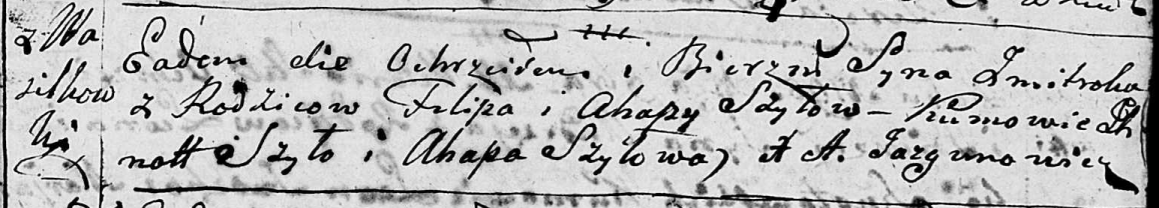 z Wa
silkow
Eadem die Ochrzciłem i Bierzm Syna Dmitroka
z Rodzicow Filipa i Ahapy Szyłow – Kumowie Ih
natt Szyło i Ahapa Szyłowa) A. Jazgunowicz